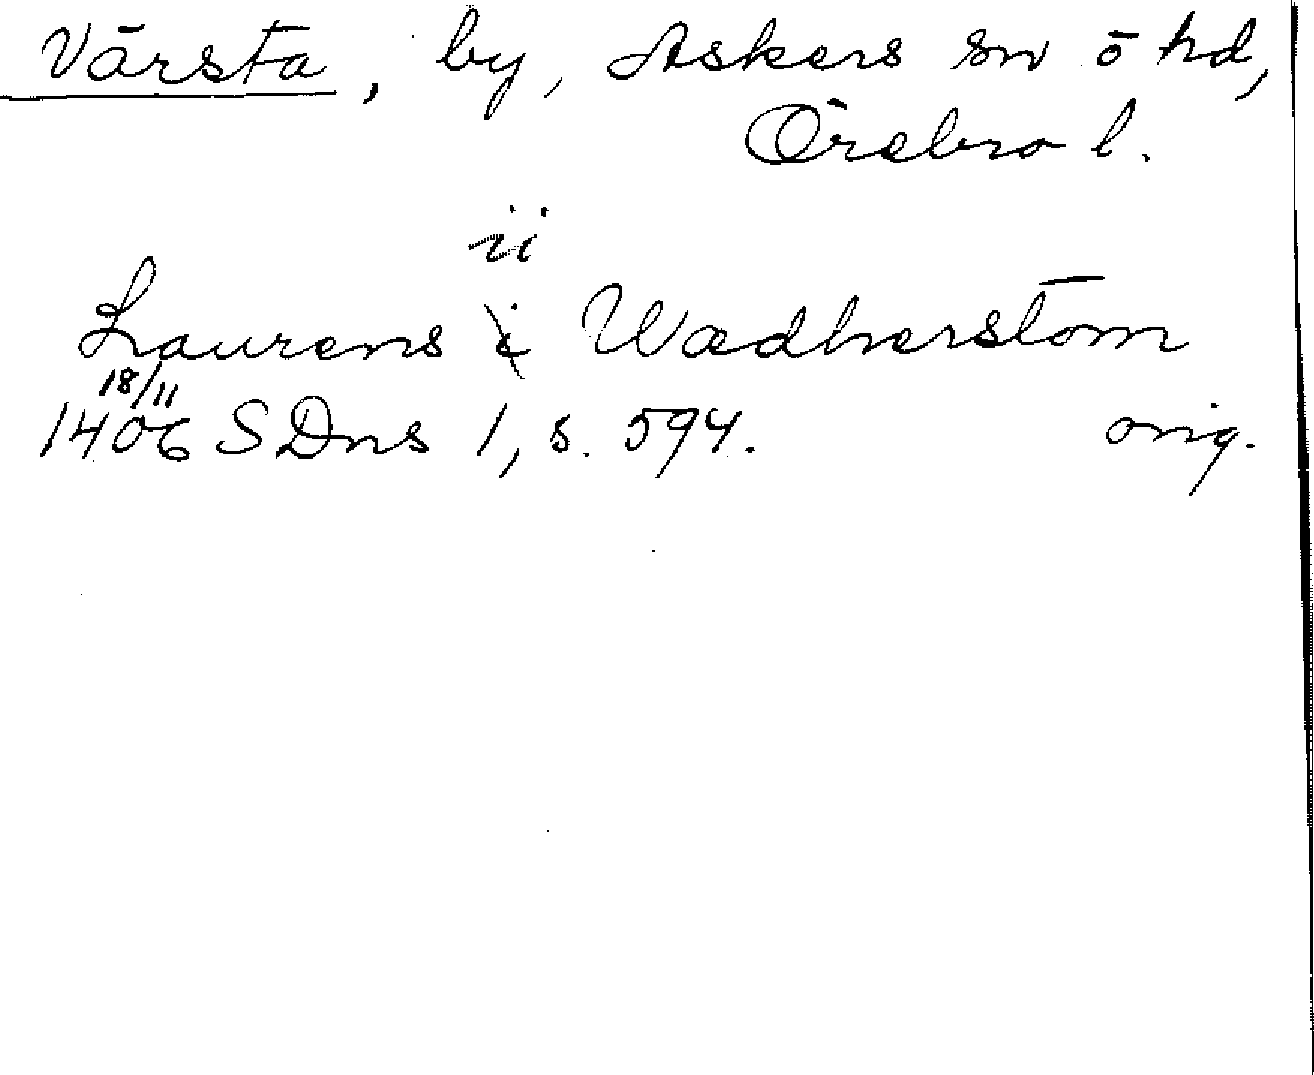 Värsta, by, Askers sn ö hd,
Örebro l.
ii
Laurens i Wædherstom
18/11
1406 SDns 1, s. 594. orig.